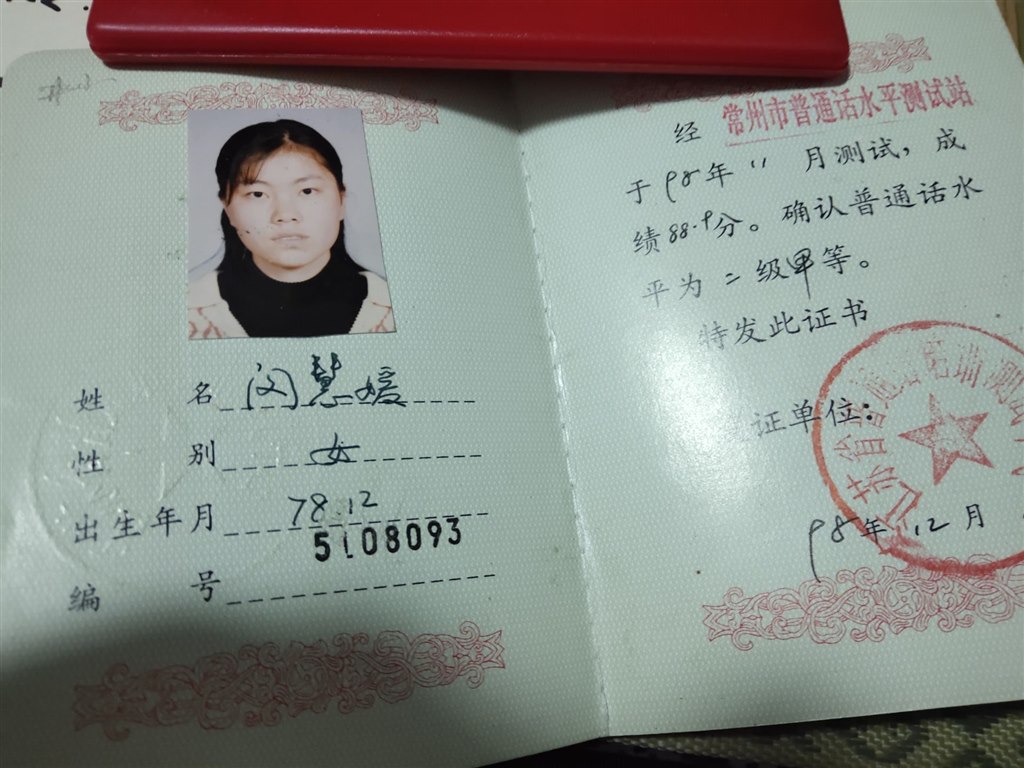 姓 名 闵慧媛
性 别 女
出生年月 78.12
5108093
编 号
经 常州市普通话水平测试站
于 98 年 11 月测试，成
绩 88.9 分。确认普通话水
平为 二 级甲等。
特发此证书
证单位：
98 年 12 月